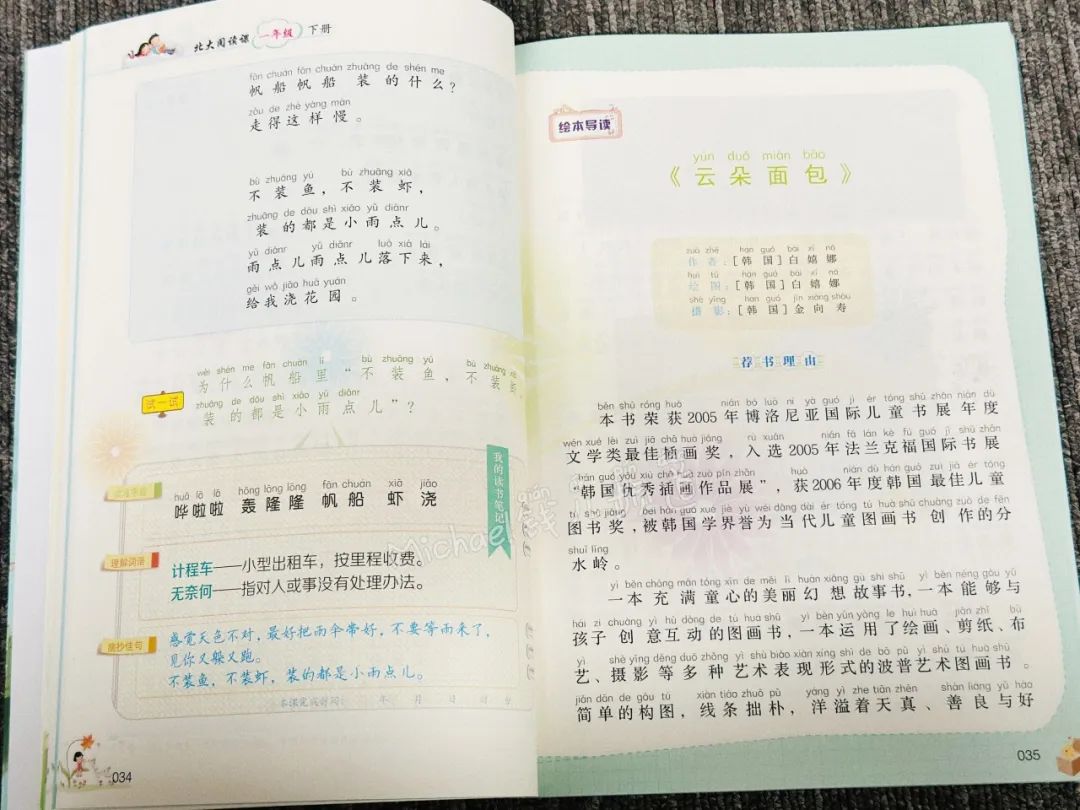 北大阅读课 一年级 下册
fān chuán fān chuán zhuāng de shén me
帆船帆船装的什么？
zǒu de zhè yàng màn
走得这样慢。
bù zhuāng yú bù zhuāng xiā
不装鱼，不装虾，
zhuāng de dōu shì xiǎo yǔ diǎnr
装的都是小雨点儿。
yǔ diǎnr yǔ diǎnr luò xià lái
雨点儿雨点儿落下来，
gěi wǒ jiāo huā yuán
给我浇花园。
wèi shén me fān chuán lǐ bù zhuāng yú bù zhuāng
为什么帆船里“不装鱼，不装虾，
试一试
zhuāng de dōu shì xiǎo yǔ diǎnr
装的都是小雨点儿”？
我的读书笔记
huā lā lā hōng lōng lōng fān chuán xiā jiāo
哗啦啦 轰隆隆 帆船 虾 浇
理解词语
计程车——小型出租车，按里程收费。
无奈何——指对人或事没有处理办法。
摘抄佳句
感觉天色不对，最好把雨伞带好，不要等雨来了，
见你又躲又跑。
不装鱼，不装虾，装的都是小雨点儿。
年 月 日
034
绘本导读
yún duǒ miàn bāo
《云朵面包》
zuò zhě hán guó bái xī nà
作者：［韩国］白嬉娜
huì tú hán guó bái xī nà
绘图：［韩国］白嬉娜
shè yǐng hán guó jīn xiàng shòu
摄影：［韩国］金向寿
荐书理由
běn shū róng huò nián bó luò ní yà guó jì ér tóng shū zhǎn nián dù
本书荣获2005年博洛尼亚国际儿童书展年度
wén xué lèi zuì jiā chā huà jiǎng rù xuǎn nián fǎ lán kè fú guó jì shū zhǎn
文学类最佳插画奖，入选2005年法兰克福国际书展
hán guó yōu xiù chā huà zuò pǐn zhǎn huò nián dù hán guó zuì jiā ér tóng
“韩国优秀插画作品展”，获2006年度韩国最佳儿童
tú shū jiǎng bèi hán guó xué jiè yù wéi dāng dài ér tóng tú huà shū chuàng zuò de fēn
图书奖，被韩国学界誉为当代儿童图画书创作的分
shuǐ lǐng
水岭。
yì běn chōng mǎn tóng xīn de měi lì huàn xiǎng gù shi shū yì běn néng gòu yǔ
一本充满童心的美丽幻想故事书，一本能够与
hái zi chuàng yì hù dòng de tú huà shū yì běn yùn yòng le huì huà jiǎn zhǐ bù
孩子创意互动的图画书，一本运用了绘画、剪纸、布
yì shè yǐng děng duō zhǒng yì shù biǎo xiàn xíng shì de bō pǔ yì shù tú huà shū
艺、摄影等多种艺术表现形式的波普艺术图画书。
jiǎn dān de gòu tú xiàn tiáo zhuō pǔ yáng yì zhe tiān zhēn shàn liáng yǔ hǎo
简单的构图，线条拙朴，洋溢着天真、善良与好
035